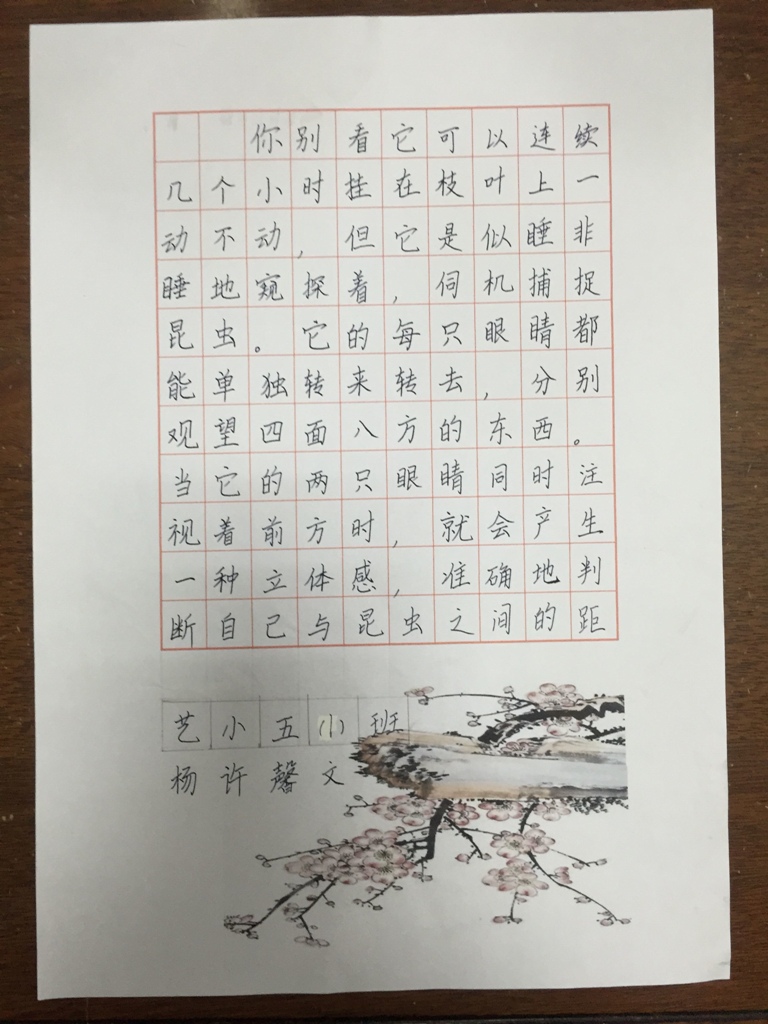 你别看它可以连续
几个小时挂在枝叶上一
动不动，但它是似睡非
睡地窥探着，伺机捕捉
昆虫。它的每只眼睛都
能单独转来转去，分别
观望四面八方的东西。
当它的两只眼睛同时注
视着前方时，就会产生
一种立体感，准确地判
断自己与昆虫之间的距
艺小五（1）班
杨许馨文